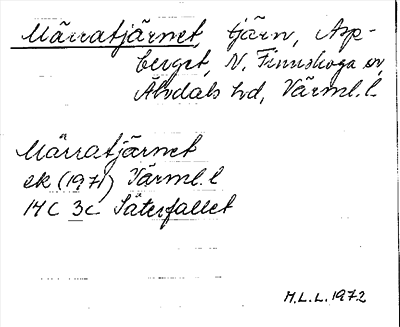 Märratjärnet, tjärn, Asp-
berget, N. Finnskoga sn,
Älvdals hd, Värml. l.
Märratjärnet
ek (1971) Värml. l
14C 3c Säterfallet
M.L.L. 1972